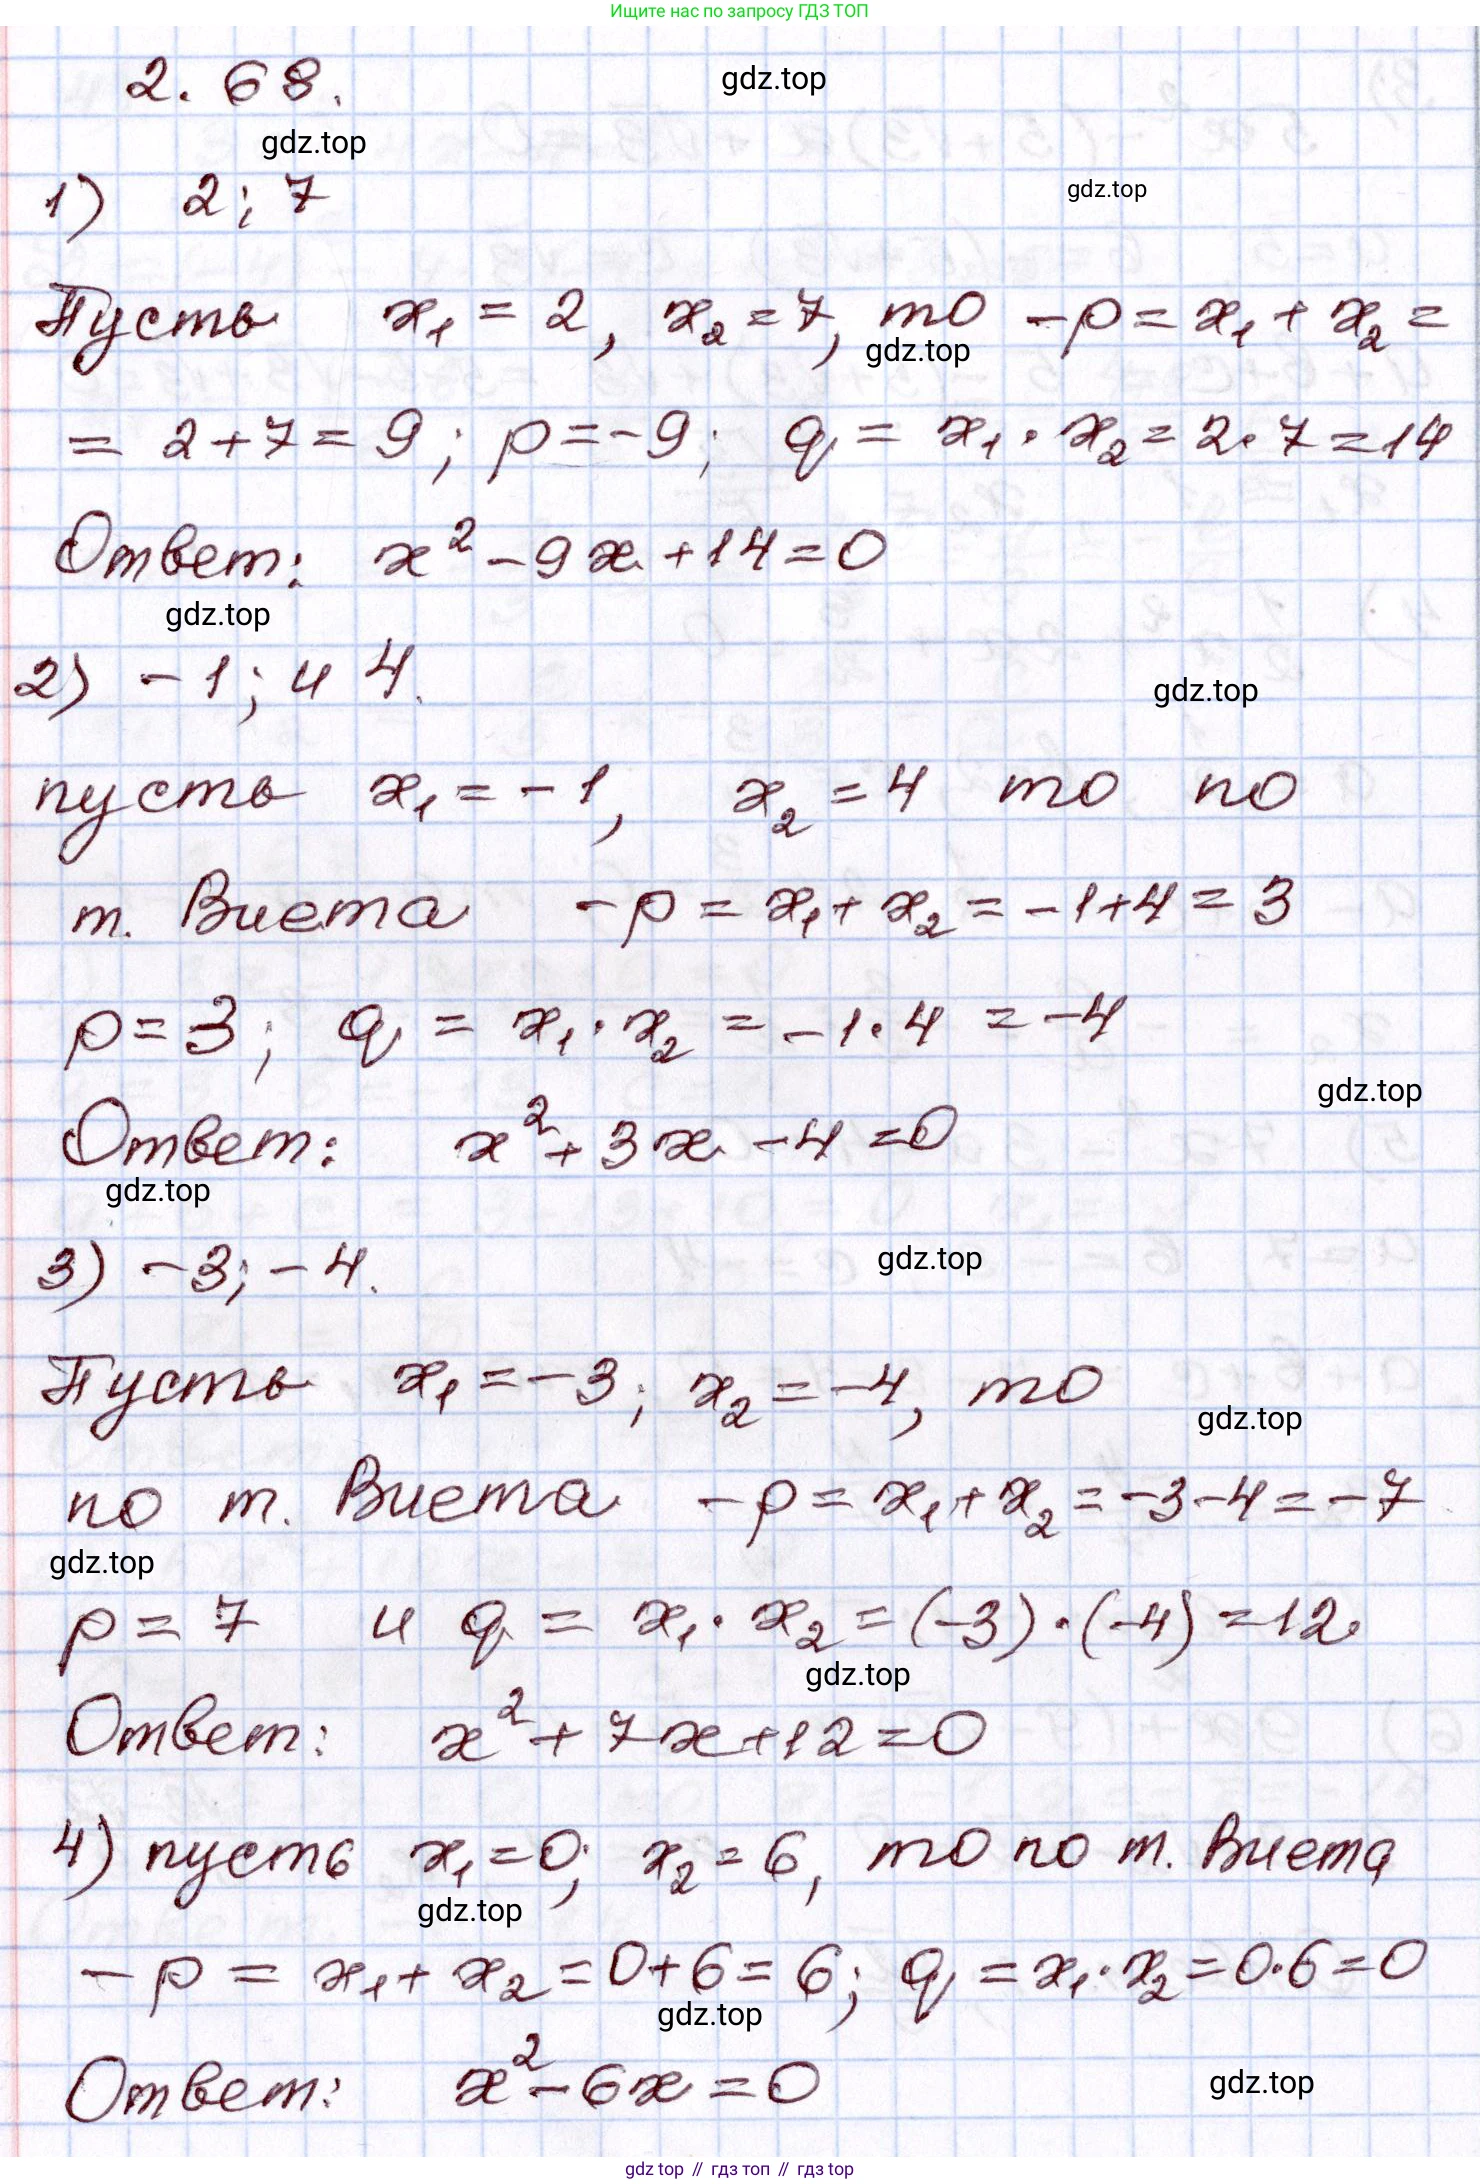 Ищите нас по запросу ГДЗ ТОП
2.68.
gdz.top
gdz.top
1) 2; 7
gdz.top
Пусть x₁ = 2, x₂ = 7, то -p = x₁ + x₂ =
gdz.top
= 2+7 = 9; p = -9; q = x₁ · x₂ = 2 · 7 = 14
Ответ: x² - 9x + 14 = 0
gdz.top
2) -1; и 4.
gdz.top
пусть x₁ = -1, x₂ = 4 то по
т. Виета -p = x₁ + x₂ = -1+4 = 3
p = 3; q = x₁ · x₂ = -1 · 4 = -4
gdz.top
Ответ: x² + 3x - 4 = 0
gdz.top
3) -3; -4.
gdz.top
Пусть x₁ = -3; x₂ = -4, то
gdz.top
по т. Виета -p = x₁ + x₂ = -3-4 = -7
gdz.top
p = 7 и q = x₁ · x₂ = (-3) · (-4) = 12.
gdz.top
Ответ: x² + 7x + 12 = 0
4) пусть x₁ = 0; x₂ = 6, то по т. Виета
gdz.top
-p = x₁ + x₂ = 0+6 = 6; q = x₁ · x₂ = 0·6 = 0
gdz.top
Ответ: x² - 6x = 0
gdz.top
gdz top // гдз топ // гдз top